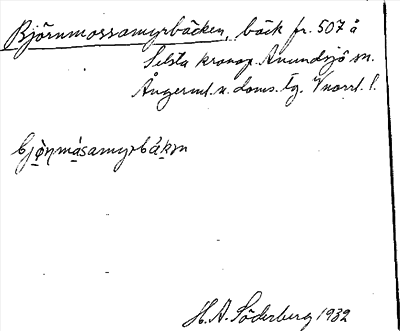 Björnmossamyrbäcken, bäck fr. 507 å
Selsta kronop. Anundsjö sn.
Ångerml. n. doms. tg. Vnorrl. l.
bjò̱ṇmá̱samyrbä́kņ
H. A. Söderberg 1932